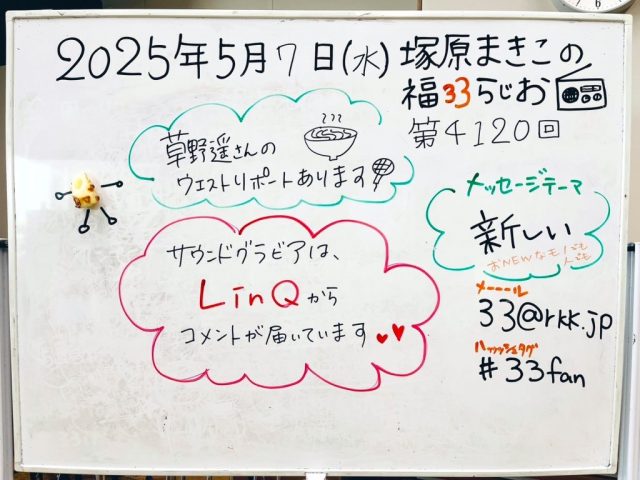 2025年5月7日(水) 塚原まきこの
福33らじお
第4120回
草野遥さんの
ウエストリポートあります
サウンドグラビアは、
LinQから
コメントが届いています
メッセージテーマ
新しい
おNEWなモノも
人も
メーール
33@rkk.jp
ハッッシュタグ
#33fan